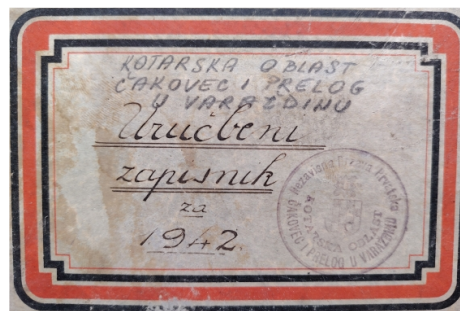 KOTARSKA OBLAST
ČAKOVEC I PRELOG
U VARAŽDINU
Uručbeni
zapisnik
za
1942.
Nezavisna Država Hrvatska
KOTARSKA OBLAST
ČAKOVEC I PRELOG U VARAŽDINU